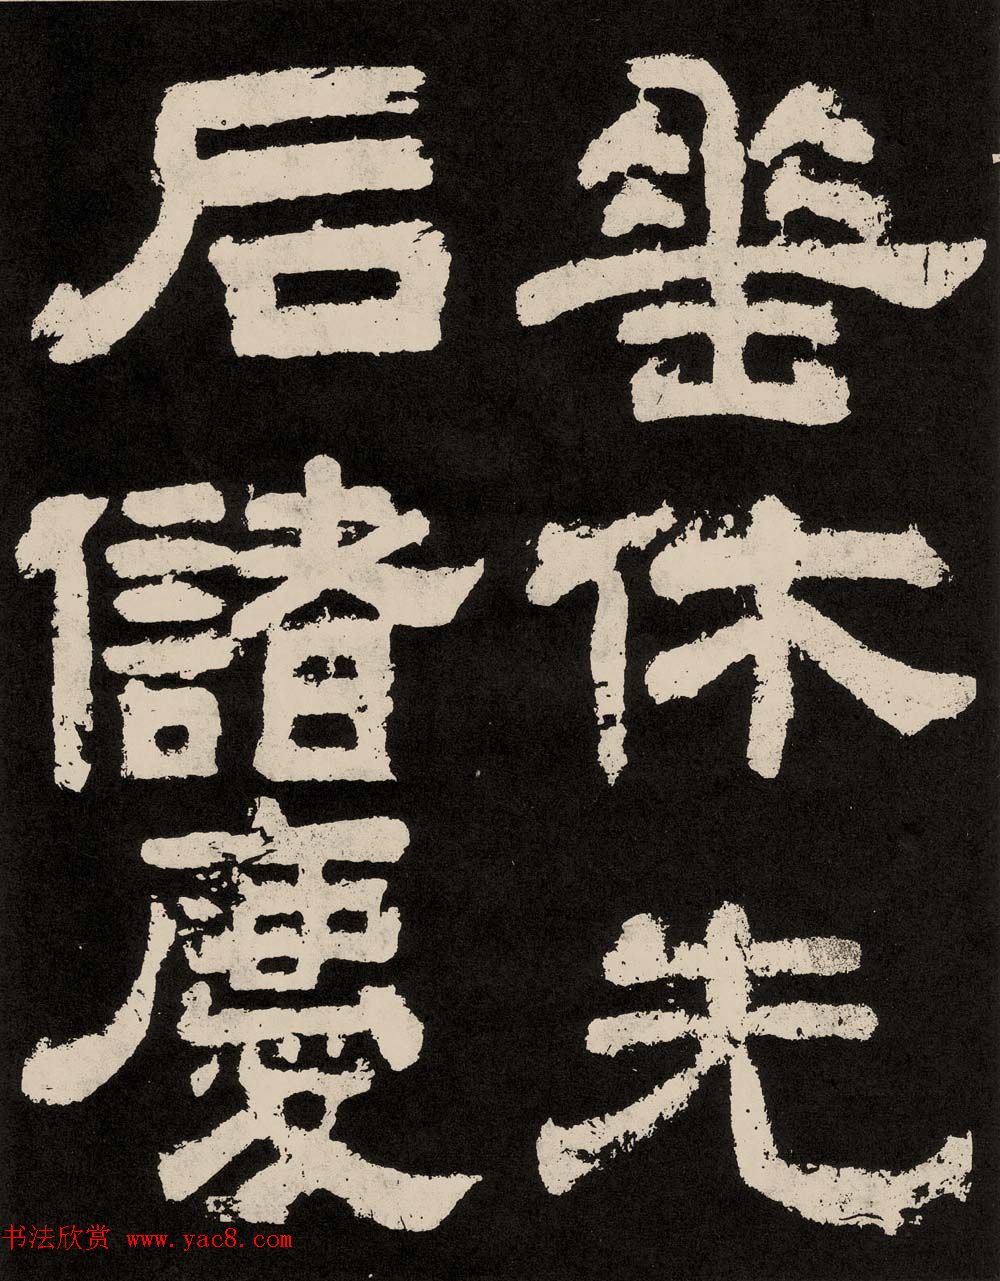 垂休先
后儲慶
书法欣赏 www.yac8.com